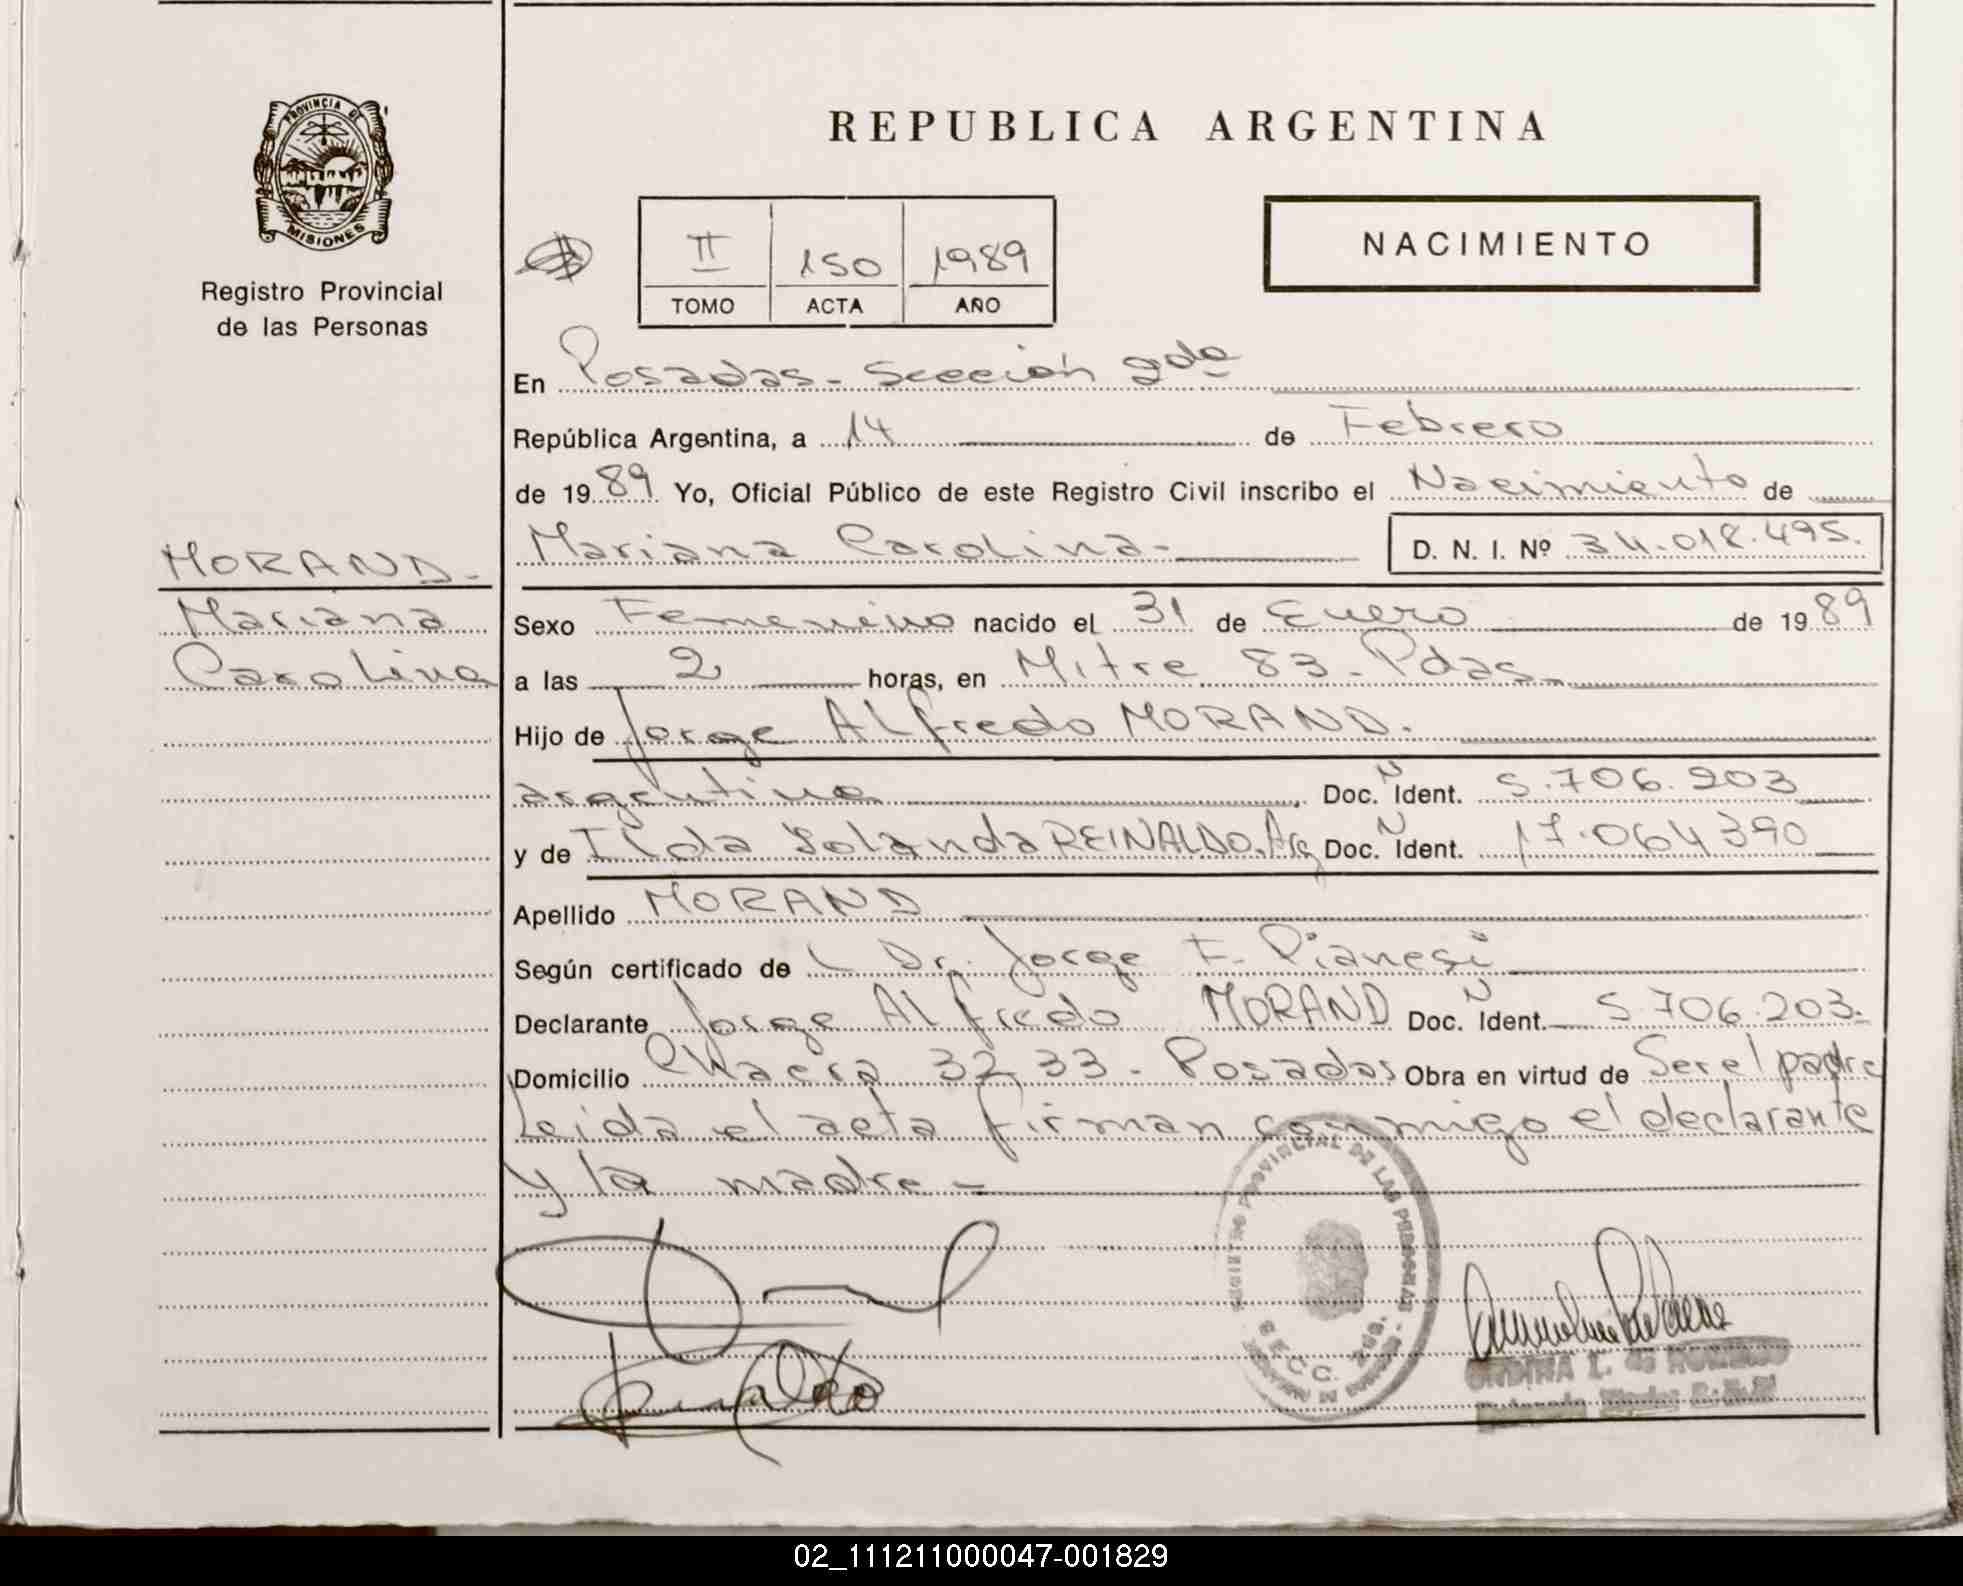 PROVINCIA DE
MISIONES
Registro Provincial
de las Personas
REPUBLICA ARGENTINA
II 150 1989
TOMO ACTA AÑO
NACIMIENTO
En Posadas - Sección 2da
República Argentina, a 14 de Febrero
de 1989 Yo, Oficial Público de este Registro Civil inscribo el Nacimiento de
Mariana Carolina - D. N. I. Nº 34.018.495.
MORAND -
Mariana
Carolina
Sexo Femenino nacido el 31 de Enero de 1989
a las 2 horas, en Mitre 83 - Pdas -
Hijo de Jorge Alfredo MORAND.
argentino Doc. N Ident. 5.706.203
y de Ilda Yolanda REINALDO. Arg Doc. N Ident. 17.064390
Apellido MORAND
Según certificado de L Dr. Jorge F. Pianesi
Declarante Jorge Alfredo MORAND Doc. N Ident. 5.706.203.
Domicilio Chacra 32, 33 - Posadas Obra en virtud de Ser el padre
Leida el acta firman conmigo el declarante
y la madre -
REGISTRO PROVINCIAL DE LAS PERSONAS
SECC. 2da.
ONDINA L. de
02_111211000047-001829